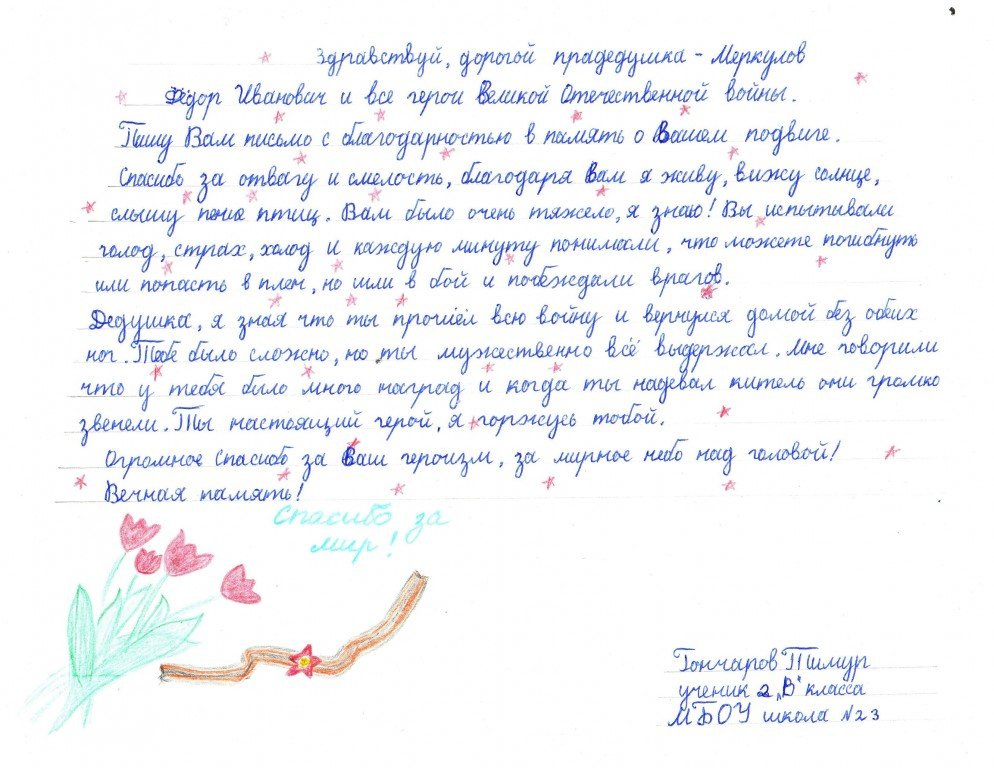 Здравствуй, дорогой прадедушка - Меркулов
Фёдор Иванович и все герои Великой Отечественной войны.
Пишу Вам письмо с благодарностью в память о Вашем подвиге.
Спасибо за отвагу и смелость, благодаря Вам я живу, вижу солнце,
слышу пение птиц. Вам было очень тяжело, я знаю! Вы испытывали
голод, страх, холод и каждую минуту понимали, что можете погибнуть
или попасть в плен, но шли в бой и побеждали врагов.
Дедушка, я знаю что ты прошёл всю войну и вернулся домой без обеих
ног. Тебе было сложно, но ты мужественно всё выдержал. Мне говорили
что у тебя было много наград и когда ты надевал китель они громко
звенели. Ты настоящий герой, я горжусь тобой.
Огромное спасибо за Ваш героизм, за мирное небо над головой!
Вечная память!
Спасибо за
мир!
Гончаров Тимур
ученик 2 „В" класса
МБОУ школа №23